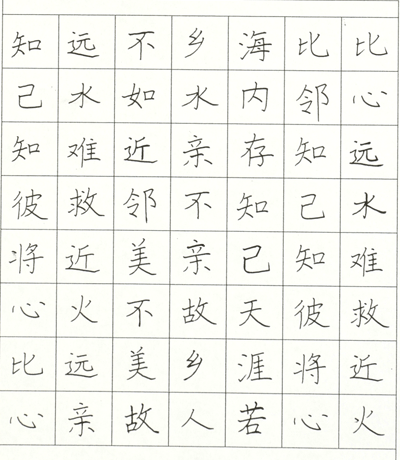 知己知彼将心比心
远水难救近火远亲
不如近邻美不美故
乡水亲不亲故乡人
海内存知己天涯若
比邻知己知彼将心
比心远水难救近火